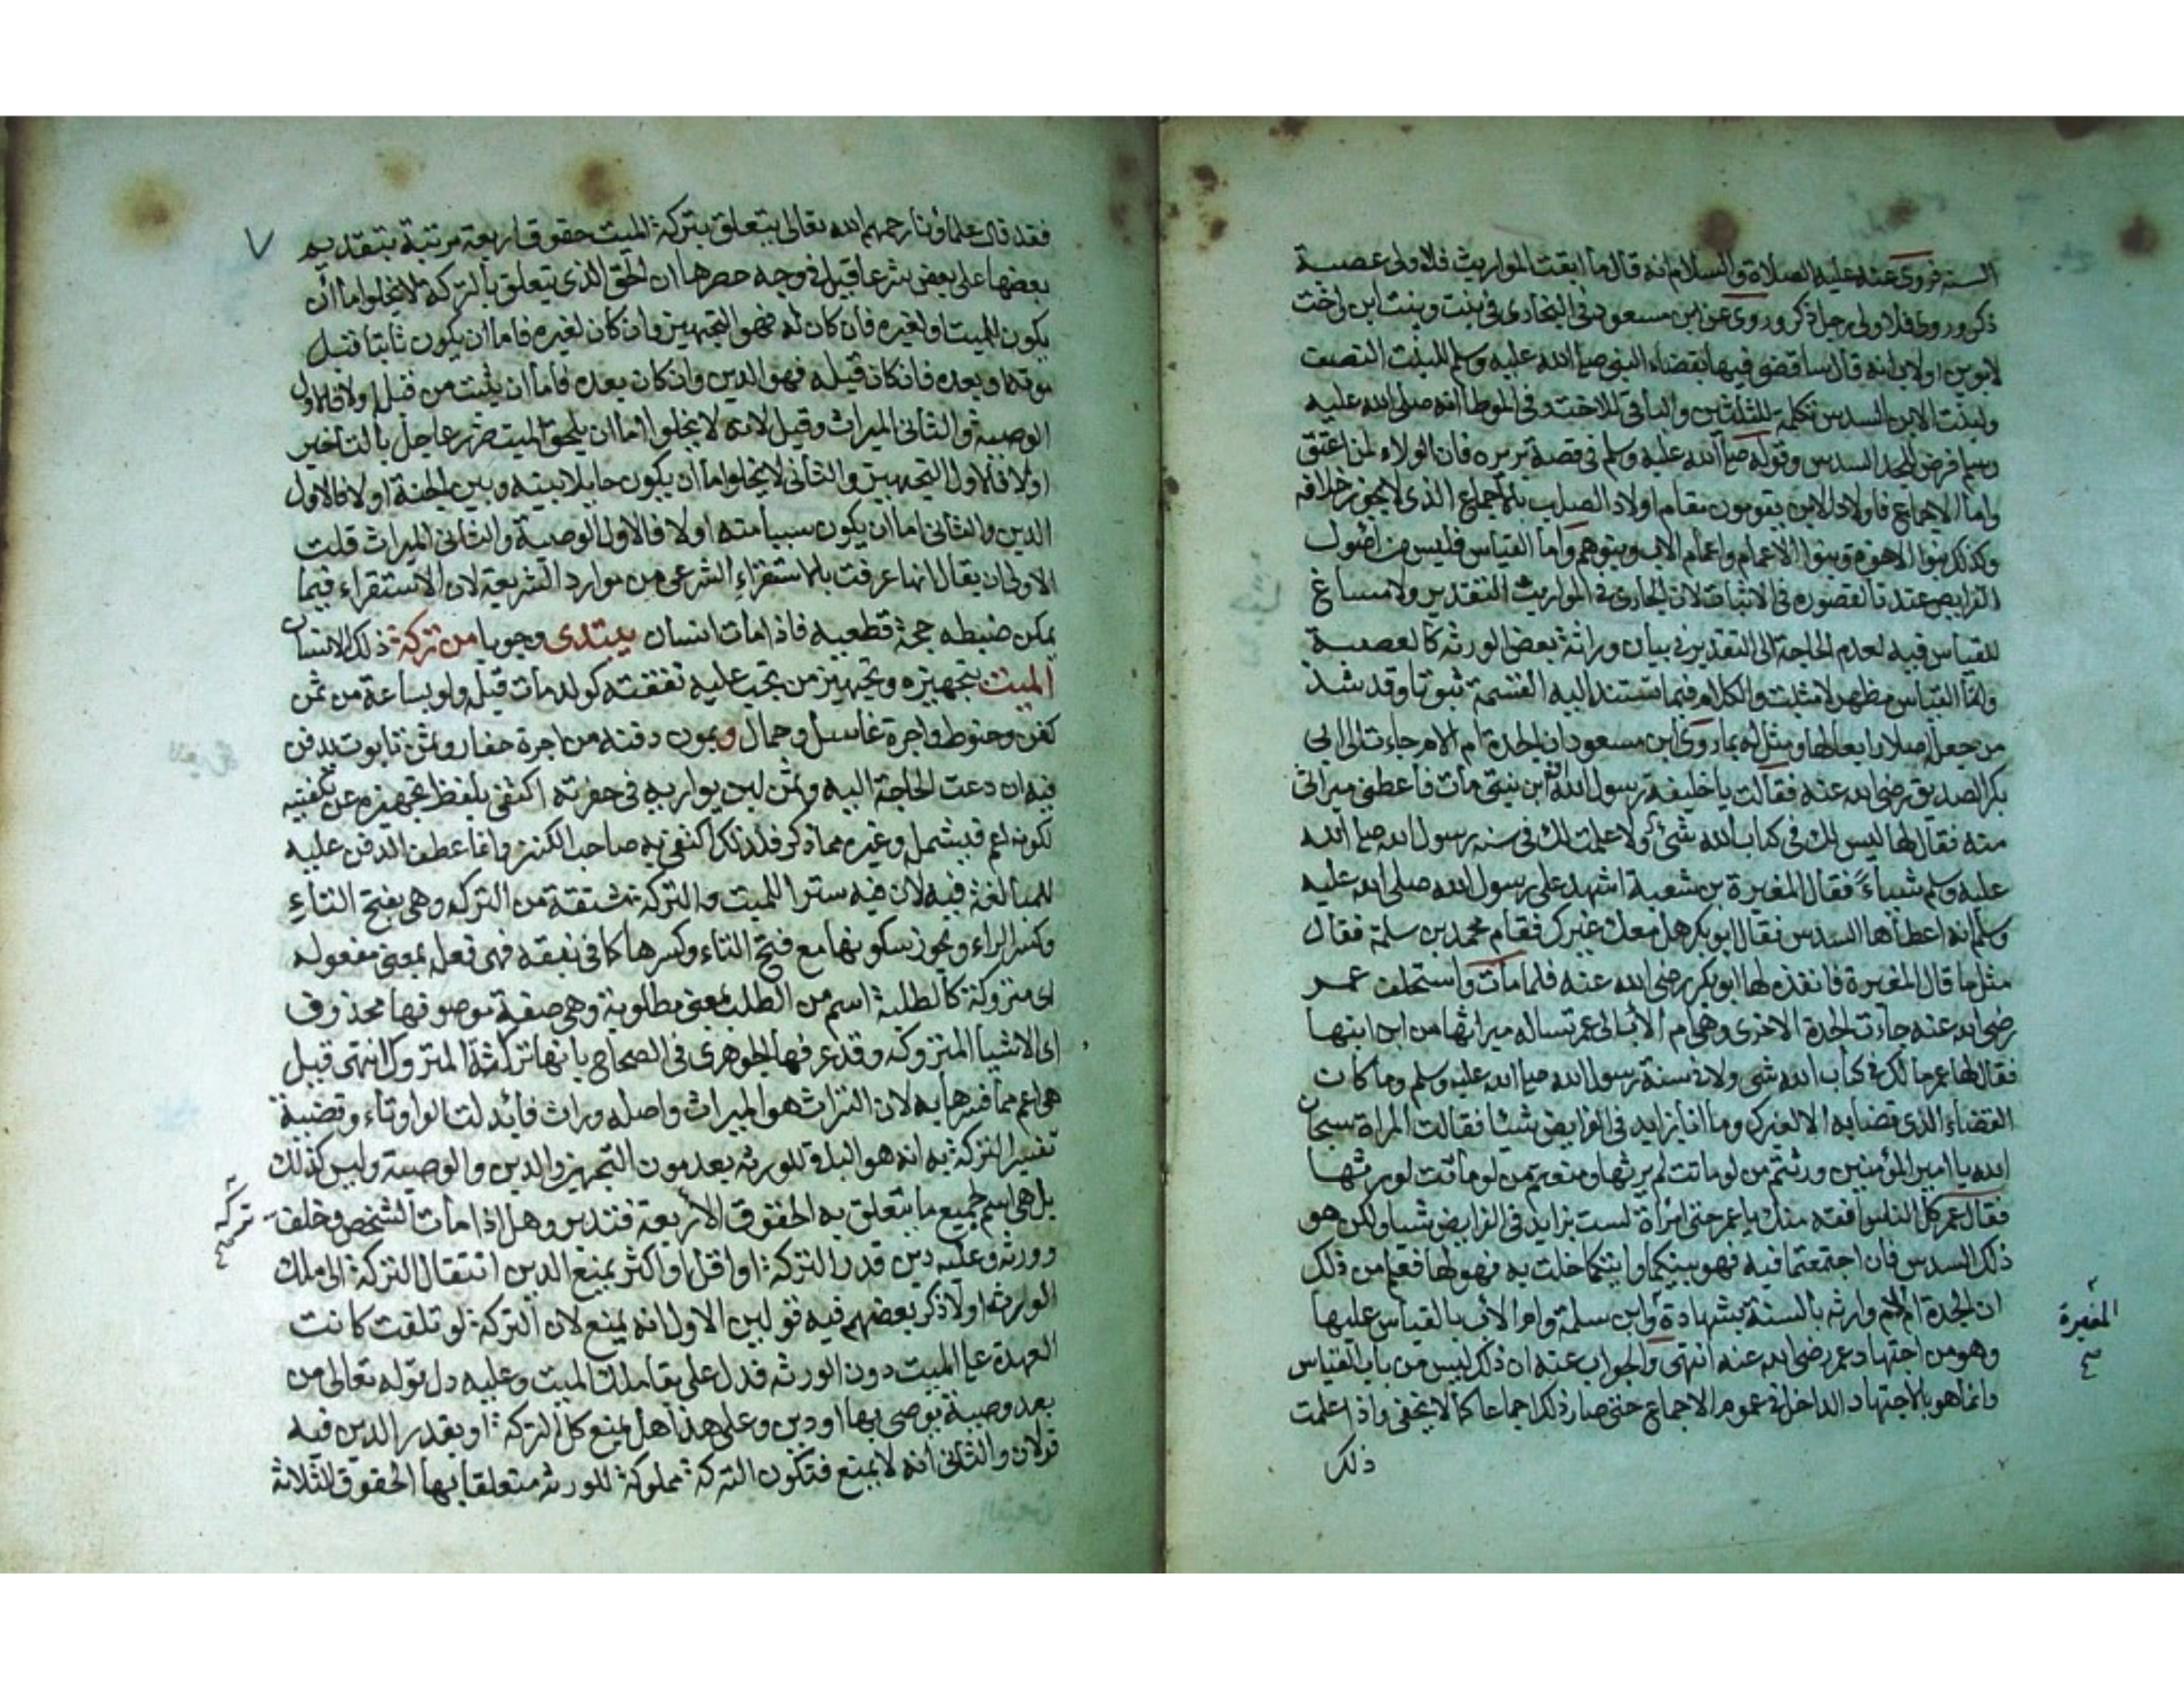 السنة فروى عنه عليه الصلاة والسلام انه قال ما ابقت المواريث فلاولى عصبة
ذكر وروى فلاولى رجل ذكر وروى عن ابن مسعود في البخارى في بنت وبنت ابن واخت
لابوين اولاب انه قال ساقضى فيها بقضاء النبى صلى الله عليه وسلم للبنت النصف
ولبنت الابن السدس تكملة للثلثين والباقى للاخت وفى الموطا انه صلى الله عليه
وسلم فرض للجد السدس وقوله صلى الله عليه وسلم فى قصة بريره فان الولاء لمن اعتق
واما الاجماع فاولاد الابن يقومون مقام اولاد الصلب بالاجماع الذى لا يجوز خلافه
وكذلك بنوا الاخوة وبنوا الاعمام واعمام الاب وبنوهم واما القياس فليس من اصول
الفرايض عندنا لقصوره فى الاثبات لان الجارى فى المواريث التقدير ولا مساغ
للقياس فيه لعدم الحاجة الى التقدير فى بيان وراثة بعض الورثه كالعصبة
ولان القياس مظهر لا مثبت والكلام فيما تستند اليه القسمة ثبوتا وقد شذ
من جعل اصلا رابعا لها ومثل له بما روى ابن مسعود ان الجدة ام الام جاءت الى ابى
بكر الصديق رضى الله عنه فقالت يا خليفة رسول الله ان ابن بنتى مات فاعطنى ميراثى
منه فقال لها ليس لك فى كتاب الله شئ ولا علمت لك فى سنه رسول الله صلى الله
عليه وسلم شياء فقال المغيرة بن شعبة اشهد على رسول الله صلى الله عليه
وسلم انه اعطاها السدس فقال ابو بكر هل معك غيرك فقام محمد بن سلمة فقال
مثل ما قال المغيرة فانفذه لها ابو بكر رضى الله عنه فلما مات واستخلف عمر
رضى الله عنه جاءت الجدة الاخرى وهى ام الاب الى عمر تساله ميراثها من ابن ابنها
فقال لها عمر ما لك فى كتاب الله شى ولا فى سنة رسول الله صلى الله عليه وسلم وما كان
القضاء الذى قضا به الا لغيرك وما انا بزايد فى الفرايض شيئا فقالت المراة سبحان
الله يا امير المؤمنين ورثتم من لو ماتت لم يرثها ومنعتم من لو ماتت لورثها
فقال عمر كل الناس افقه منك يا عمر حتى امراة لست بزايد فى الفرايض شيا ولكن هو
ذلك السدس فان اجتمعتما فيه فهو بينكما وايتكما خلت به فهو لها فعلم من ذلك
ان الجدة ام الام وارثه بالسنة بشهادة وابن سلمة وام الاب بالقياس عليها
المغيرة
صح
وهو من اجتهاد عمر رضى الله عنه انتهى والجواب عنه ان ذلك ليس من باب القياس
وانما هو بالاجتهاد الداخل فى عموم الاجماع حتى صار ذلك اجماعا كما لا يخفى واذا علمت
ذلك
٧
فقد قال علماؤنا رحمهم الله تعالى يتعلق بتركة الميت حقوق اربعة مرتبة بتقديم
بعضها على بعض شرعا قيل فى وجه حصرها ان الحق الذى يتعلق بالتركة لا يخلوا اما ان
يكون للميت او لغيره فان كان له فهو التجهيز وان كان لغيره فاما ان يكون ثابتا قبل
موته او بعده فان كان قبله فهو الدين وان كان بعده فاما ان يثبت من قبله اولا فالاول
الوصية والثانى الميراث وقيل لانه لا يخلوا اما ان يلحق الميت ضرر عاجل بالتاخير
اولا فالاول التجهيز والثانى لا يخلوا اما ان يكون حايلا بينه وبين الجنة اولا فالاول
الدين والثانى اما ان يكون سببا منه اولا فالاول الوصية والثانى الميراث قلت
الاولى ان يقال انها عرفت بالاستقراء الشرعى من موارد الشريعة لان الاستقراء فيما
يمكن ضبطه حجة قطعيه فاذا مات انسان يبتدى وجوبا من تركة ذلك الانسان
الميت بتجهيزه وتجهيز من تجب عليه نفقته كولد مات قبله ولو بساعة من ثمن
كفن وحنوط واجرة غاسل وحمال ويمون دفنه من اجرة حفار وثمن تابوت يدفن
فيه ان دعت الحاجة اليه وثمن لبن يوارى به فى حفرته اكتفى بلفظ تجهيزه عن تكفينه
لكونه اعم فيشمله وغيره مما ذكر فلذلك اكتفى به صاحب الكنز وانما عطف الدفن عليه
للمبالغة فيه لان فيه سترا للميت والتركة مشتقة من الترك وهى بفتح التاء
وكسر الراء ويجوز سكونها مع فتح التاء وكسرها كما فى نبقة فهى فعله بمعنى مفعوله
اى متروكة كالطلبة اسم من الطلب بمعنى مطلوبة وهى صفة موصوفها محذوف
اى الاشيا المتروكه وقد عرفها الجوهرى فى الصحاح بانها تراث المتروك انتهى قيل
هى اعم مما فسرها به لان التراث هو الميراث واصله وراث فابدلت الواو تاء وقضية
تفسير التركة به انه هو الباقى للورثه بعد مون التجهيز والدين والوصية وليس كذلك
بل هى اسم لجميع ما يتعلق به الحقوق الاربعة فتدبر وهل اذا مات الشخص وخلف
تركه
صح
وورثه وعليه دين قدر التركة او اقل او اكثر يمنع الدين انتقال التركة الى ملك
الورثه اولا ذكر بعضهم فيه قولين الاول انه يمنع لان التركة لو تلفت كانت
العهدة على الميت دون الورثه فدل على بقا ملك الميت وعليه دل قوله تعالى من
بعد وصية يوصى بها او دين وعلى هذا هل يمنع كل التركة او بقدر الدين فيه
قولان والثانى انه لا يمنع فتكون التركة مملوكة للورثه متعلقا بها الحقوق الثلاثة